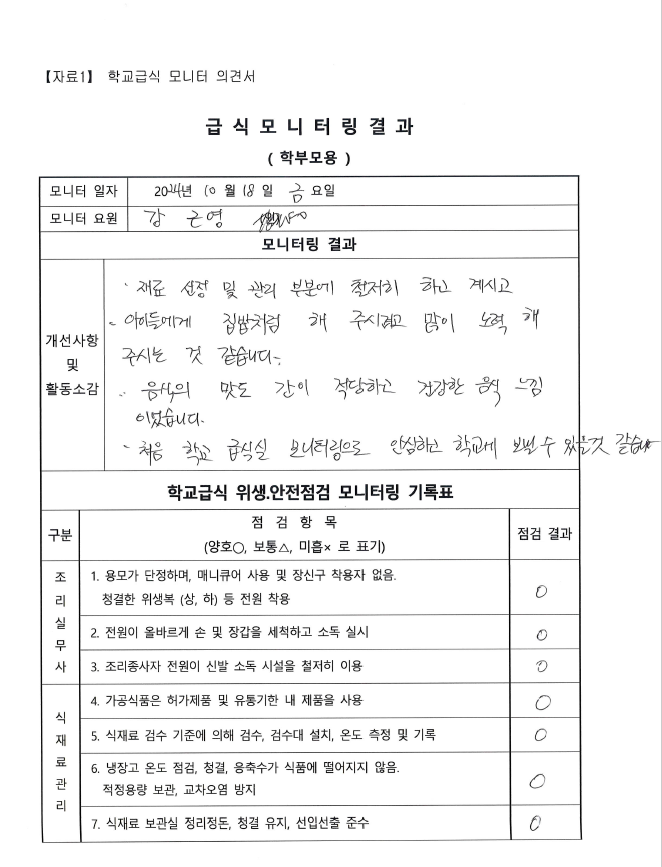 【자료1】 학교급식 모니터 의견서
급 식 모 니 터 링 결 과
( 학부모용 )
모니터 일자 2024년 10 월 18 일 금 요일
모니터 요원 강 근영
모니터링 결과
개선사항
및
활동소감
· 재료 선정 및 관리 부분에 철저히 하고 계시고
- 아이들에게 집밥처럼 해 주시려고 많이 노력 해
주시는 것 같습니다.
· 음식의 맛도 간이 적당하고 건강한 음식 느낌
이었습니다.
· 처음 학교 급식실 모니터링으로 안심하고 학교에 보낼 수 있을것 같습니
학교급식 위생.안전점검 모니터링 기록표
구분
점 검 항 목
(양호○, 보통△, 미흡× 로 표기)
점검 결과
조리실무사
1. 용모가 단정하며, 매니큐어 사용 및 장신구 착용자 없음.
청결한 위생복 (상, 하) 등 전원 착용 ○
2. 전원이 올바르게 손 및 장갑을 세척하고 소독 실시 ○
3. 조리종사자 전원이 신발 소독 시설을 철저히 이용 ○
식재료관리
4. 가공식품은 허가제품 및 유통기한 내 제품을 사용 ○
5. 식재료 검수 기준에 의해 검수, 검수대 설치, 온도 측정 및 기록 ○
6. 냉장고 온도 점검, 청결, 응축수가 식품에 떨어지지 않음.
적정용량 보관, 교차오염 방지 ○
7. 식재료 보관실 정리정돈, 청결 유지, 선입선출 준수 ○